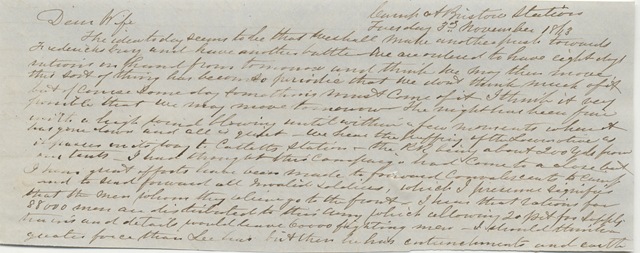 Camp at Bristow Station
Dear Wife Tuesday 3rd November 1863
The idea to day seems to be that we shall make another push towards
Fredericksburg and have another battle We are ordered to have eight days
rations on hand from to morrow and think we may then move
this sort of thing has become so periodic that we don't think much of it
but of course some day something must come of it I think it very
possible that we may move to morrow The night has been fine
with a high wind blowing until within a few moments when it
has gone down and all is quiet - we hear the puffing of the locomotive as
it passes on its way to Catletts Station - the R.R. being about yds from
our tents - I had thought this campaign had come to a close but
I hear great efforts have been made to forward convalescents to camp
and to send forward all invalid soldiers, which I presume signify
that the men whom they relieve go to the front - I hear that rations for
88000 men are distributed to this army which allowing 20 pct for supply
trains and details would leave 60000 fighting men - I should think
quate force than Lee has but then he has entrenchments and earth